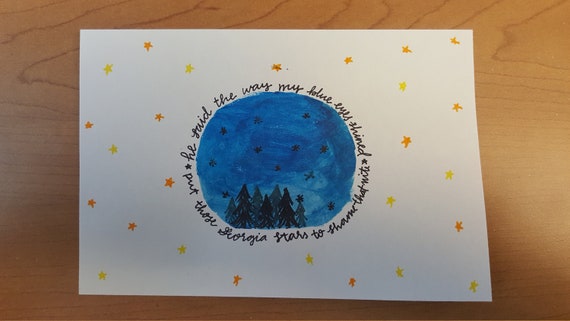 he said the way my blue eyes shined
put those Georgia stars to shame that nite